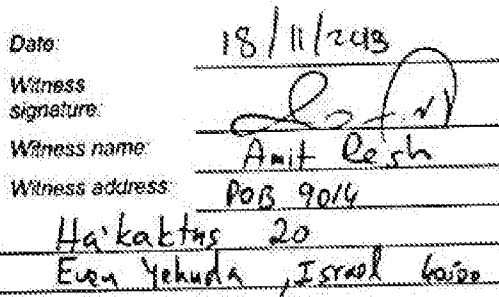 Date: 18/11/2013
Witness
signature:
Witness name: Amit
Witness address: POB 9014
Ha'kaktus 20
Even Yehuda, Israel